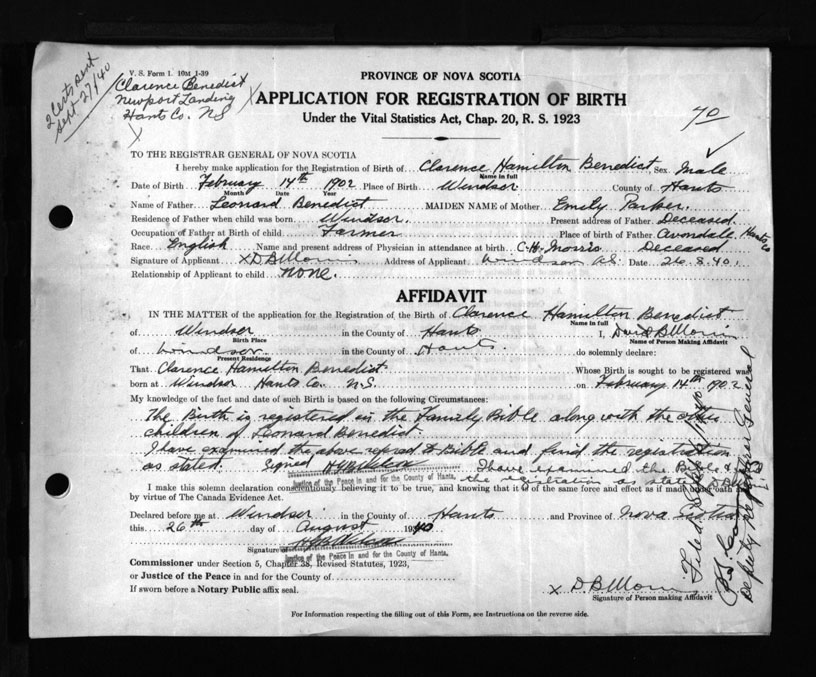 2 Certs sent
Sept 27/40
V. S. Form 1. 10M 1-39
Clarence Benedict
Newport Landing
Hants Co. NS
PROVINCE OF NOVA SCOTIA
APPLICATION FOR REGISTRATION OF BIRTH
Under the Vital Statistics Act, Chap. 20, R. S. 1923
70
TO THE REGISTRAR GENERAL OF NOVA SCOTIA
I hereby make application for the Registration of Birth of Clarence Hamilton Benedict Sex Male
Name in full
Date of Birth February 14th 1902 Place of Birth Windsor County of Hants
Month Date Year
Name of Father Leonard Benedict MAIDEN NAME of Mother Emily Parker
Residence of Father when child was born Windsor. Present address of Father Deceased
Occupation of Father at Birth of child Farmer Place of birth of Father Avondale Hants Co
Race English Name and present address of Physician in attendance at birth C. H. Morris Deceased
Signature of Applicant x D B Morris Address of Applicant Windsor N.S. Date 26.8.40.
Relationship of Applicant to child None.
AFFIDAVIT
IN THE MATTER of the application for the Registration, of the Birth of Clarence Hamilton Benedict
Name in full
of Windsor in the County of Hants I, David B Morris
Birth Place Name of Person Making Affidavit
of Windsor in the County of Hants do solemnly declare:
Present Residence
That Clarence Hamilton Benedict Whose Birth is sought to be registered was
born at Windsor Hants Co. N.S. on February 14th 1902
My knowledge of the fact and date of such Birth is based on the following Circumstances:
The Birth is registered in the Family Bible along with the other
children of Leonard Benedict.
I have examined the above refered to Bible and find the registration
as stated. Signed I have examined the Bible &
Justice of the Peace in and for the County of Hants. the registration as stated DBM
I make this solemn declaration conscientiously believing it to be true, and knowing that it is of the same force and effect as if made under oath
by virtue of The Canada Evidence Act.
Declared before me at Windsor in the County of Hants and Province of Nova Scotia
this 26th day of August 1940
Signature
Justice of the Peace in and for the County of Hants.
Commissioner under Section 5, Chapter 38, Revised Statutes, 1923,
or Justice of the Peace in and for the County of
If sworn before a Notary Public affix seal.
x D B Morris
Signature of Person making Affidavit
For Information respecting the filling out of this Form, see Instructions on the reverse side.
Filed Sept
Deputy Registrar General